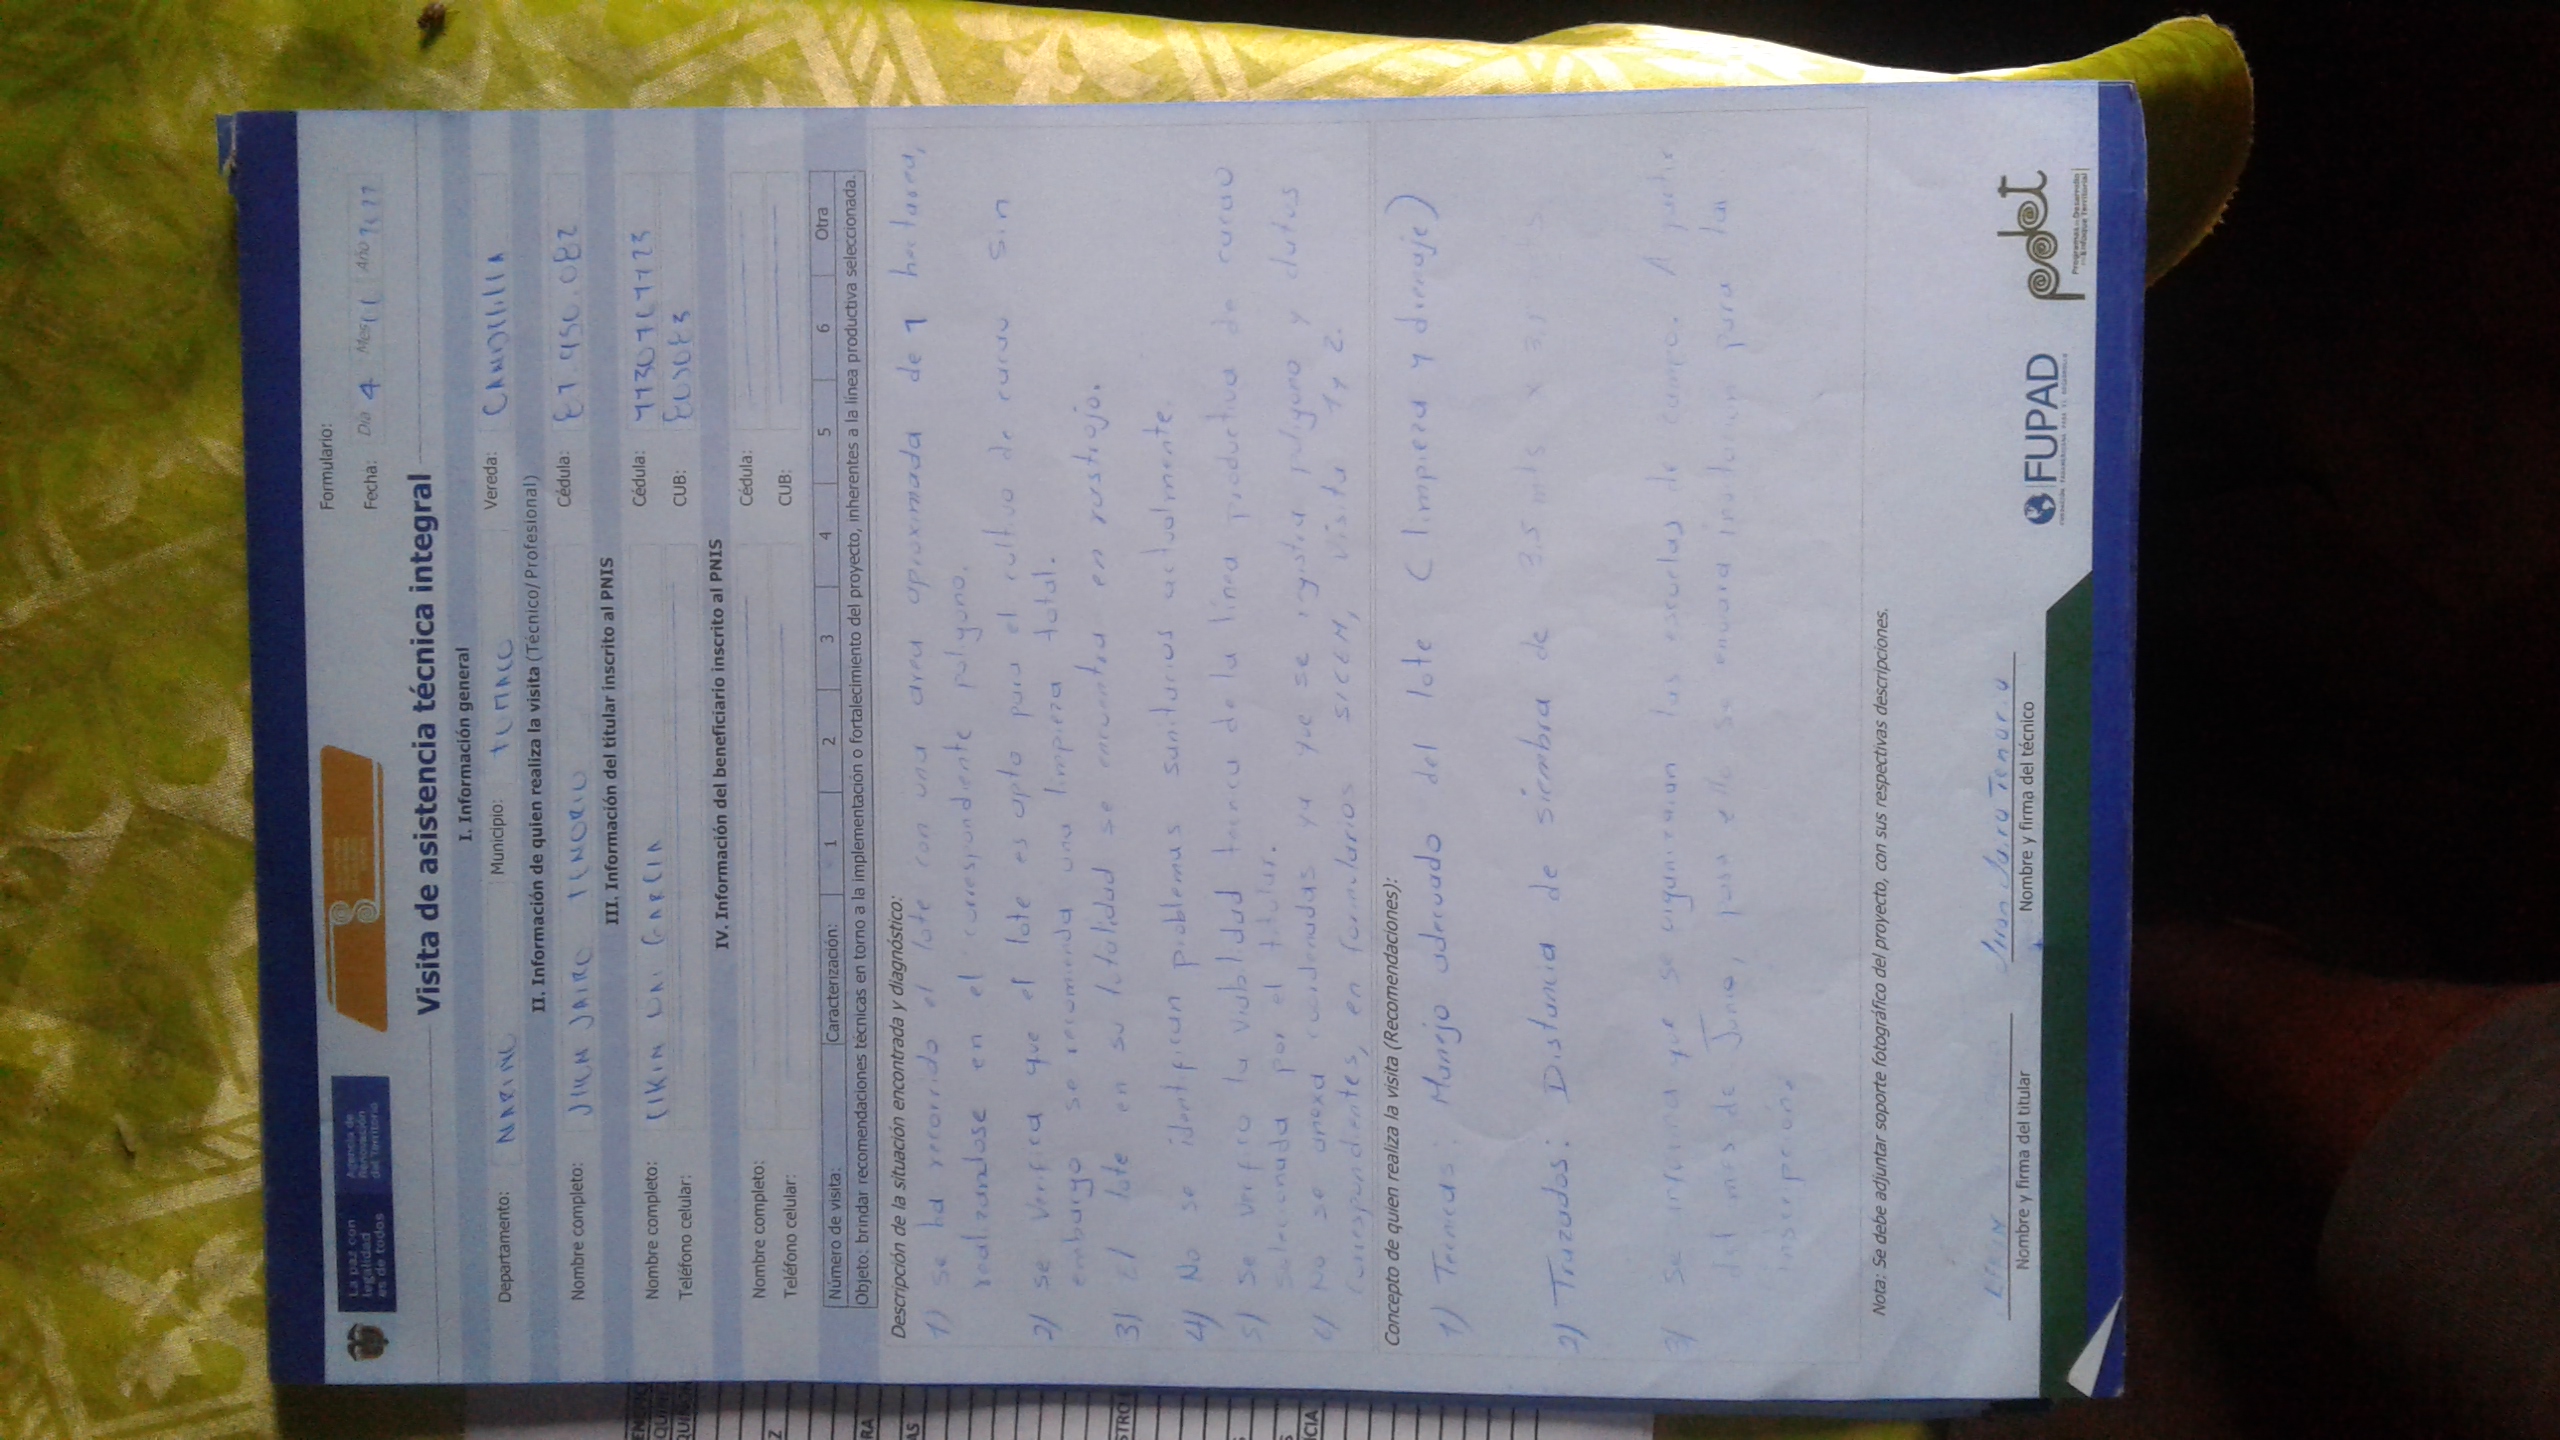 La paz con
legalidad
es de todos
Agencia de
Renovación
del Territorio
Formulario:
Fecha: Día 4 Mes Año
Visita de asistencia técnica integral
I. Información general
Departamento: NARIÑO Municipio: TUMACO Vereda: CANDELILLA
II. Información de quien realiza la visita (Técnico/Profesional)
Nombre completo: JUAN JAIRO TENORIO Cédula: 87.950.082
III. Información del titular inscrito al PNIS
Nombre completo: GARCIA Cédula:
Teléfono celular: CUB:
IV. Información del beneficiario inscrito al PNIS
Nombre completo: Cédula:
Teléfono celular: CUB:
Número de visita: Caracterización: 1 2 3 4 5 6 Otra
Objeto: brindar recomendaciones técnicas en torno a la implementación o fortalecimiento del proyecto, inherentes a la línea productiva seleccionada.
Descripción de la situación encontrada y diagnóstico:
1) se ha recorrido el lote con una area aproximada de 1 hectarea,
realizandose en el correspondiente polygono.
2) se verifica que el lote es apto para el cultivo de cacao sin
embargo se recomienda una limpieza total.
3) El lote en su totalidad se encuentra en rastrojo.
4) No se identifican problemas sanitarios actualmente.
5) Se verifico la viablidad tecnica de la linea productiva de cacao
seleccionada por el titular.
6) No se anexa coordenadas ya que se registra poligono y datos
correspondientes, en formularios SICEM, visita 1 y 2.
Concepto de quien realiza la visita (Recomendaciones):
1) Tecnicas: Manejo adecuado del lote (limpieza y drenaje)
2) Trazados: Distancia de siembra de 3.5 mts x 3.5 mts
3) Se informa que se organizaran las escuelas de campo. A partir
del mes de Junio, para ello se enviara para las
inscripcions
Nota: Se debe adjuntar soporte fotográfico del proyecto, con sus respectivas descripciones.
Juan Jairo Tenorio
Nombre y firma del titular
Nombre y firma del técnico
FUPAD
pdet
Programas de Desarrollo
con Enfoque Territorial